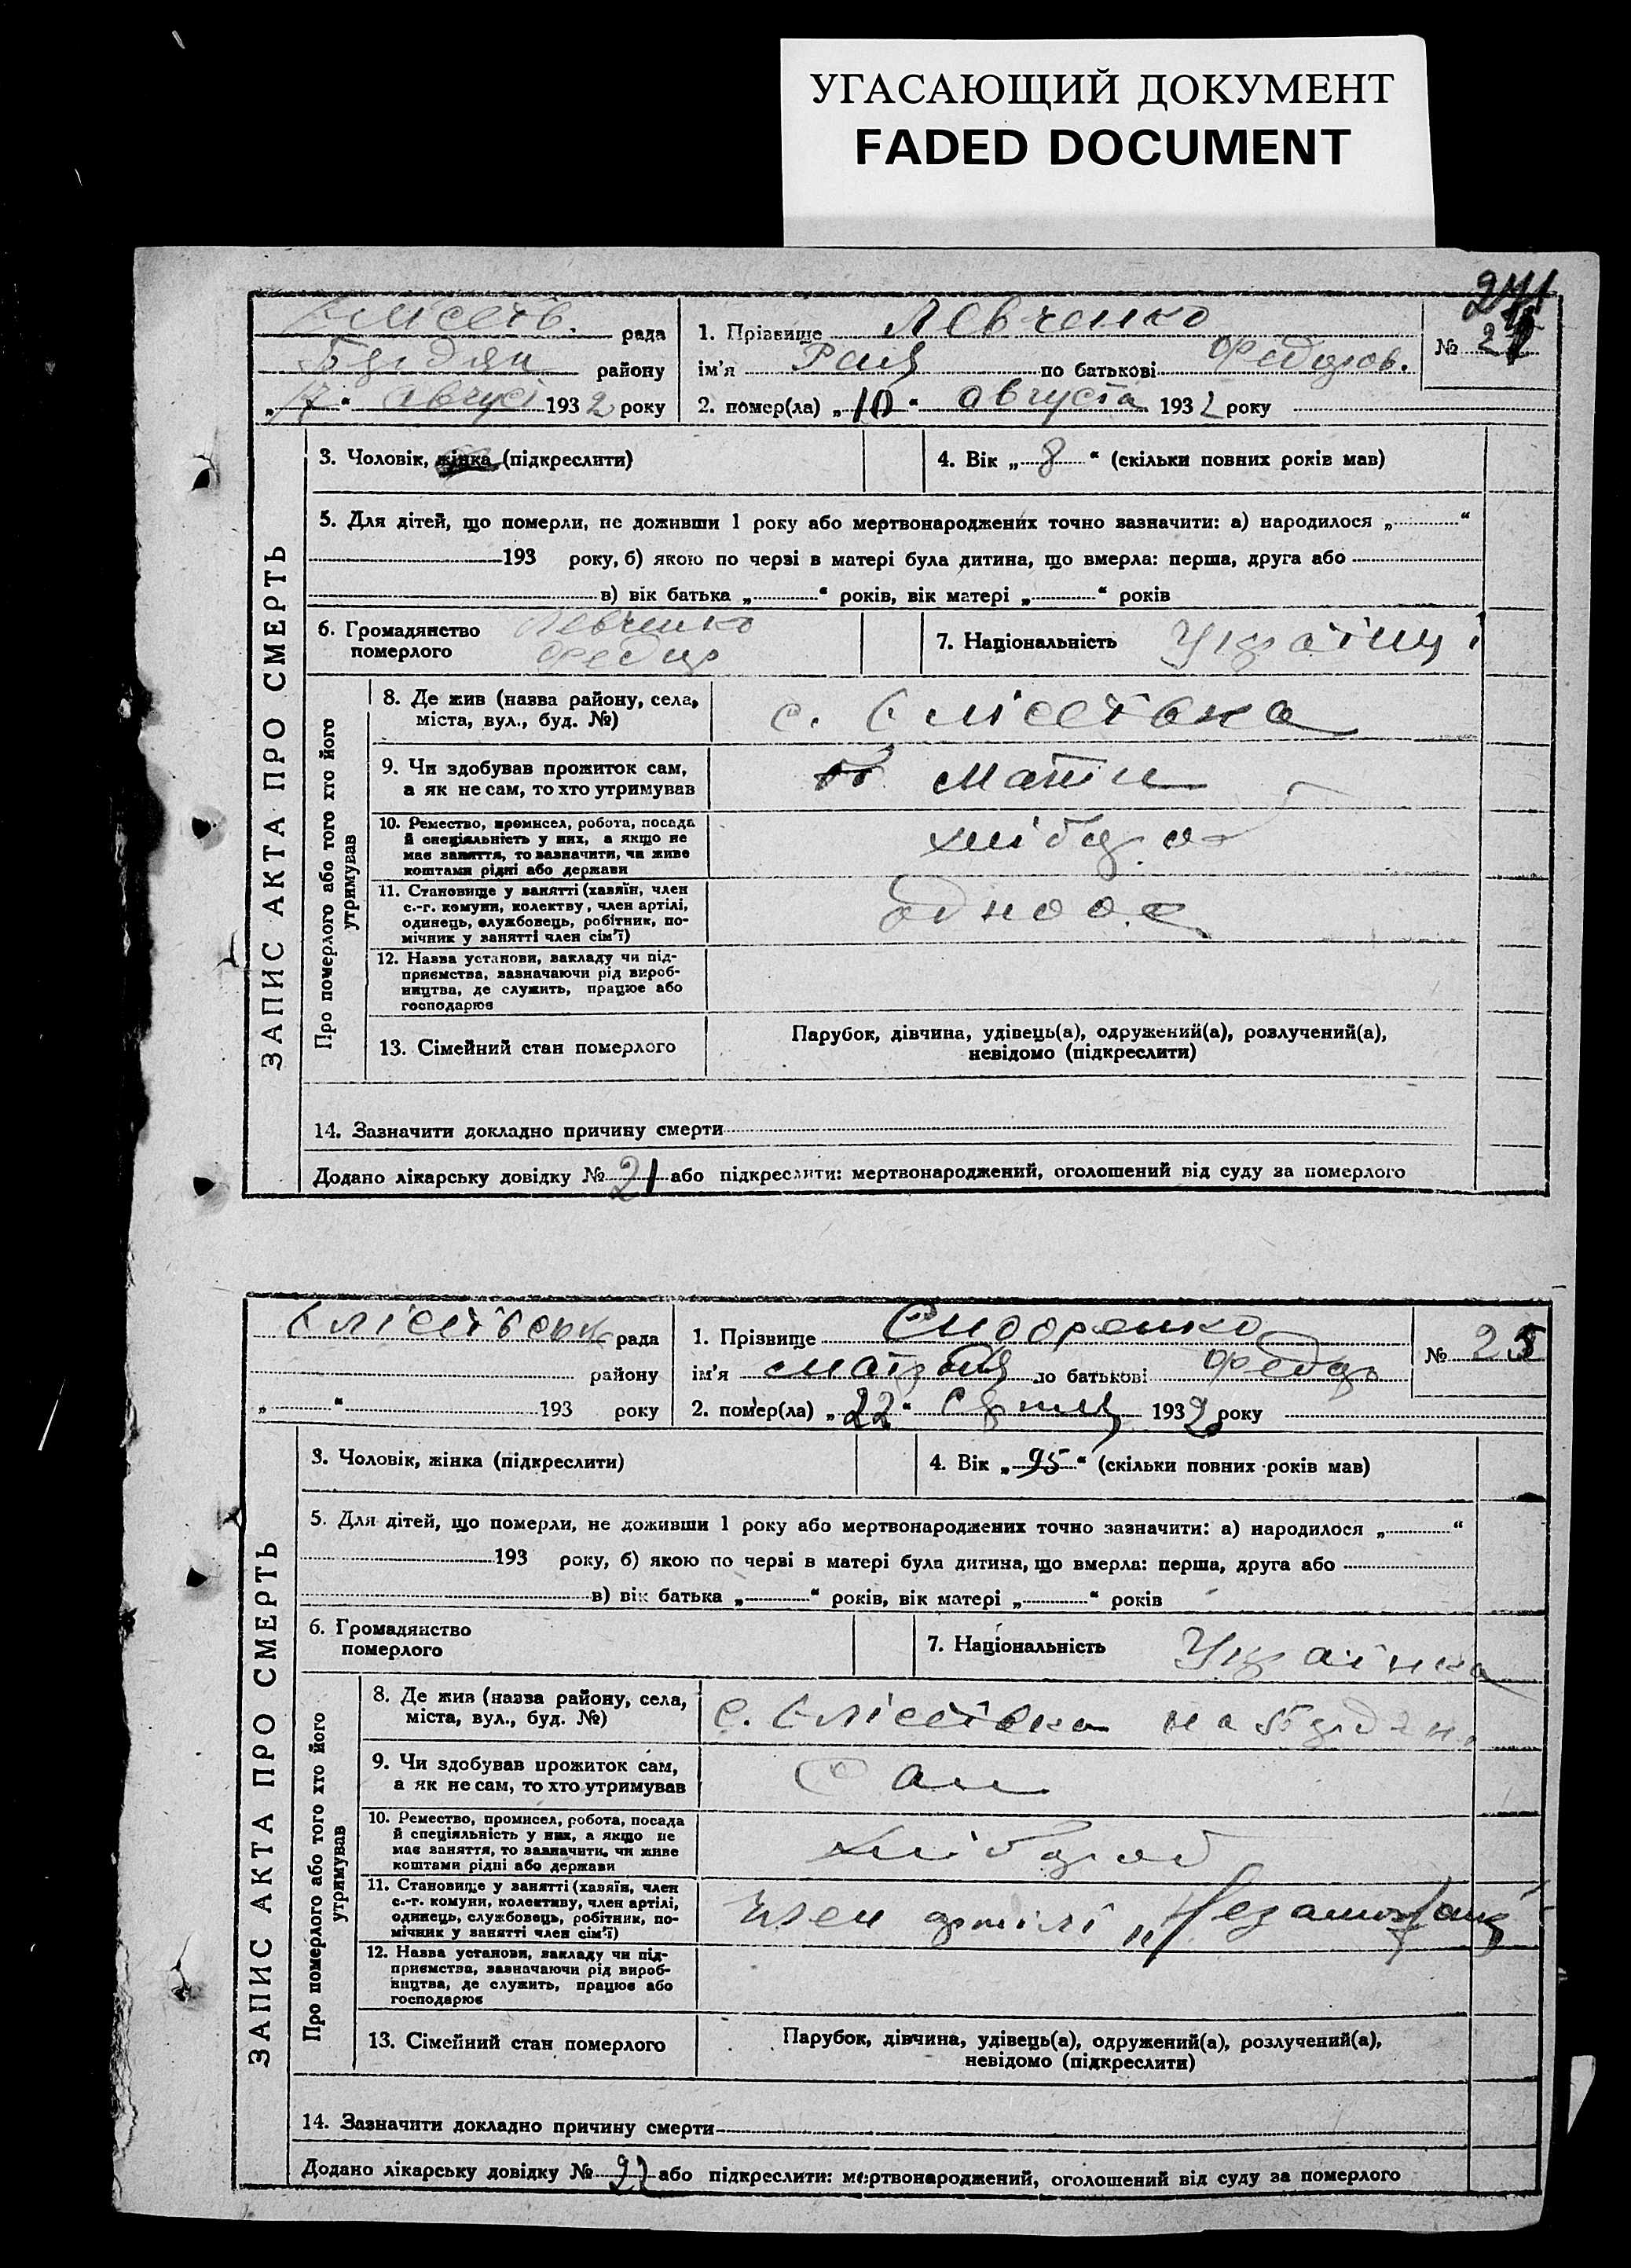 УГАСАЮЩИЙ ДОКУМЕНТ
FADED DOCUMENT
ЗАПИС АКТА ПРО СМЕРТЬ
рада
району
"17" август 1932 року
1. Прізвище Левченко
ім'я Рая по батькові Федоров.
2. помер(ла) "10" августа 1932 року
№
3. Чоловік, жінка (підкреслити)
4. Вік "8" (скільки повних років мав)
5. Для дітей, що померли, не доживши 1 року або мертвонароджених точно зазначити: а) народилося " "
193 року, б) якою по черзі в матері була дитина, що вмерла: перша, друга або
в) вік батька " " років, вік матері " " років
6. Громадянство
померлого
Левченко
Федор
7. Національність
Про померлого або того хто його
утримував
8. Де жив (назва району, села,
міста, вул., буд. №)
с. Єлісеївка
9. Чи здобував прожиток сам,
а як не сам, то хто утримував
мати
10. Ремество, промисел, робота, посада
й спеціяльність у них, а якщо не
має заняття, то зазначити, чи живе
коштами рідні або держави
хлібороб
11. Становище у занятті (хазяїн, член
с.-г. комуни, колективу, член артілі,
одинець, службовець, робітник, по-
мічник у занятті член сім'ї)
12. Назва установи, закладу чи під-
приємства, зазначаючи рід вироб-
ництва, де служить, працює або
господарює
13. Сімейний стан померлого
Парубок, дівчина, удівець(а), одружений(а), розлучений(а),
невідомо (підкреслити)
14. Зазначити докладно причину смерти
Додано лікарську довідку № 21 або підкреслити: мертвонароджений, оголошений від суду за померлого
ЗАПИС АКТА ПРО СМЕРТЬ
рада
району
" " 193 року
1. Прізвище Сидоренко
ім'я по батькові Федор
2. помер(ла) "22" Серпня 1932 року
№ 25
3. Чоловік, жінка (підкреслити)
4. Вік "95" (скільки повних років мав)
5. Для дітей, що померли, не доживши 1 року або мертвонароджених точно зазначити: а) народилося " "
193 року, б) якою по черзі в матері була дитина, що вмерла: перша, друга або
в) вік батька " " років, вік матері " " років
6. Громадянство
померлого
7. Національність Українка
Про померлого або того хто його
утримував
8. Де жив (назва району, села,
міста, вул., буд. №)
с. Єлісеївка
9. Чи здобував прожиток сам,
а як не сам, то хто утримував
Сам
10. Ремество, промисел, робота, посада
й спеціяльність у них, а якщо не
має заняття, то зазначити, чи живе
коштами рідні або держави
хлібороб
11. Становище у занятті (хазяїн, член
с.-г. комуни, колективу, член артілі,
одинець, службовець, робітник, по-
мічник у занятті член сім'ї)
член артілі
12. Назва установи, закладу чи під-
приємства, зазначаючи рід вироб-
ництва, де служить, працює або
господарює
13. Сімейний стан померлого
Парубок, дівчина, удівець(а), одружений(а), розлучений(а),
невідомо (підкреслити)
14. Зазначити докладно причину смерти
Додано лікарську довідку № 22 або підкреслити: мертвонароджений, оголошений від суду за померлого